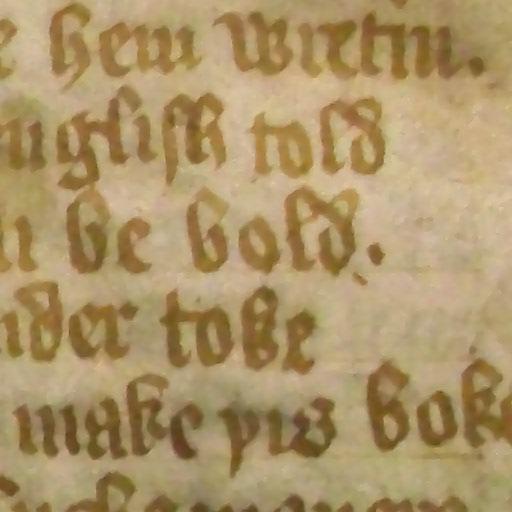 hem wretin.
nglissh told
be bold.
nder toke
make þis boke